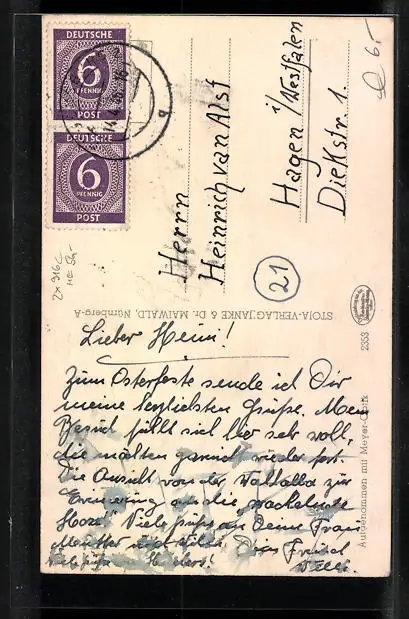 DEUTSCHE
6
PFENNIG
POST
DEUTSCHE
6
PFENNIG
POST
Herrn
Heinrich van Alst
Hagen i/Westfalen
Diekstr. 1.
21
6,-
2x 916 C
STOJA-VERLAG JANKE & Dr. MAIWALD, Nürnberg-A
2353
Aufgenommen mit Meyer-Optik
Lieber Heini!
Zum Osterfeste sende ich Dir
meine herzlichsten Grüße. Mein
Besuch fühlt sich hier sehr wohl,
die möchten garnicht wieder fort.
Die Ansicht von der Walhalla zur
Erinnerung an die
Viele Grüße an Deine Frau
Mutter und Dein Freund
Willi.